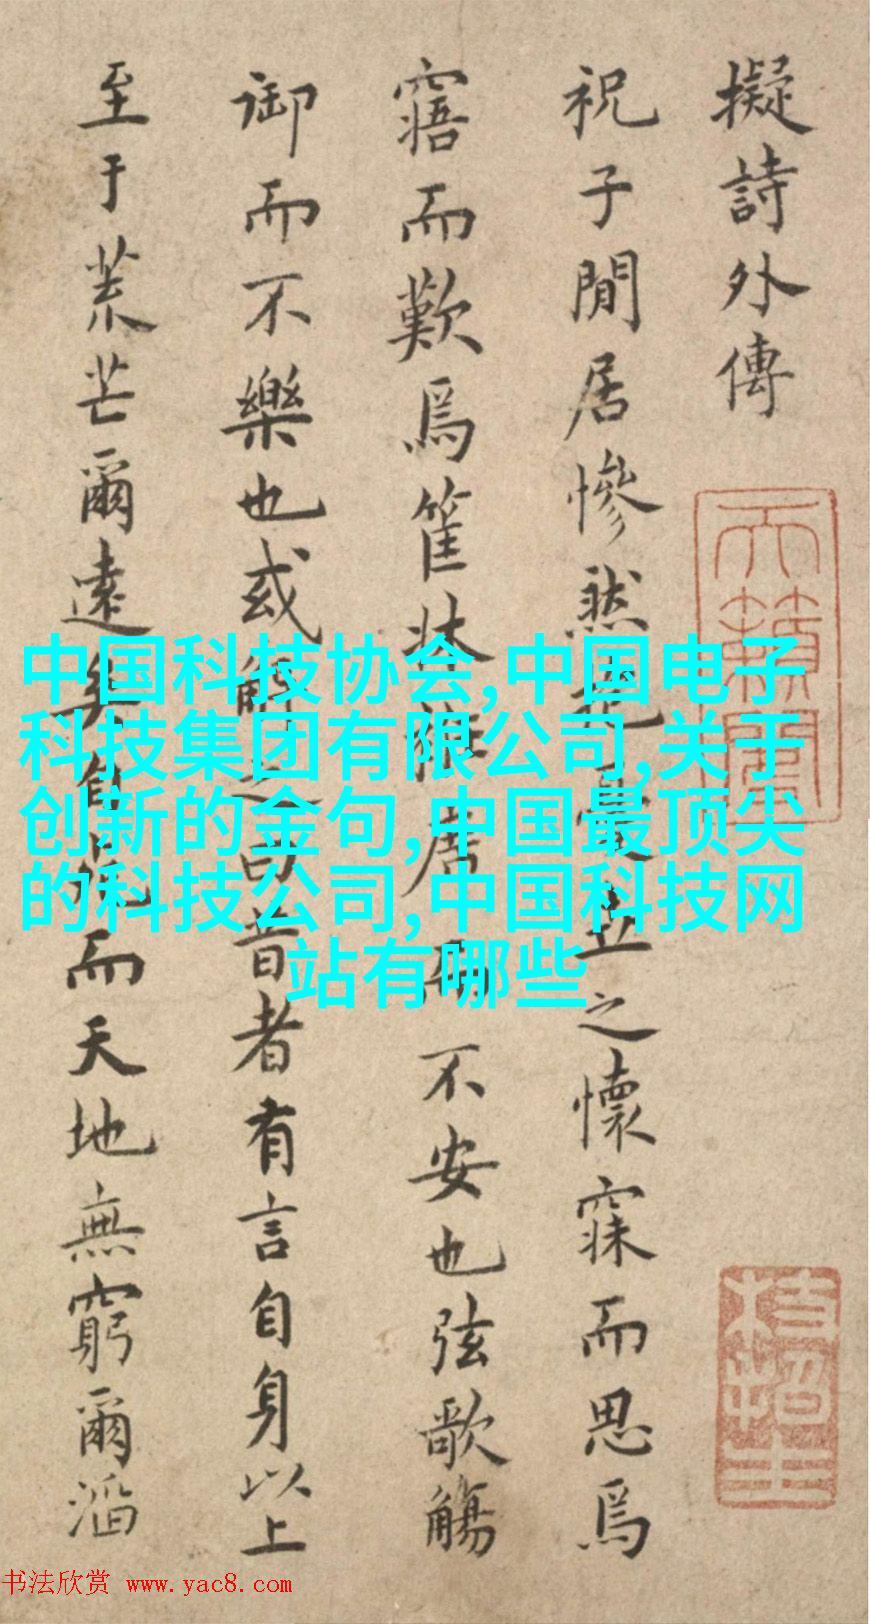 擬詩外傳
祝子閒居慘然立之懷寐而思焉
寤而歎焉筐牀居而不安也弦歌觴
御而不樂也或解之曰昔者有言自身以上
至于荒芒爾遠矣自死而天地無窮爾滔
天籟閣
枝指生
中国科技协会,中国电子
科技集团有限公司,关于
创新的金句,中国最顶尖
的科技公司,中国科技网
站有哪些
书法欣赏 www.yac8.com